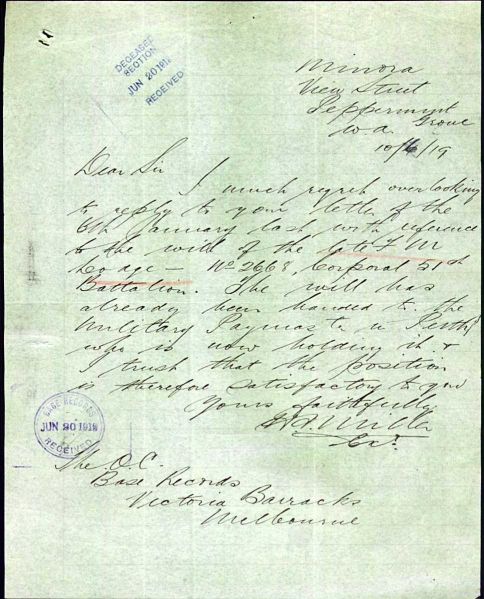 DECEASED
SECTION
JUN 20 1919
RECEIVED
Minora
View Street
Peppermint
Grove
W.A.
10/6/19
Dear Sir
I much regret overlooking
to reply to your letter of the
6th January last with reference
to the will of the late F M
No 2668, Corporal 51st
Battalion. The will has
already been handed to the
Military Paymaster in Perth
who is now holding it &
I trust that the position
is therefore satisfactory to you
Yours faithfully
The O.C.
Base Records
Victoria Barracks
Melbourne
BASE RECORDS
JUN 20 1919
RECEIVED